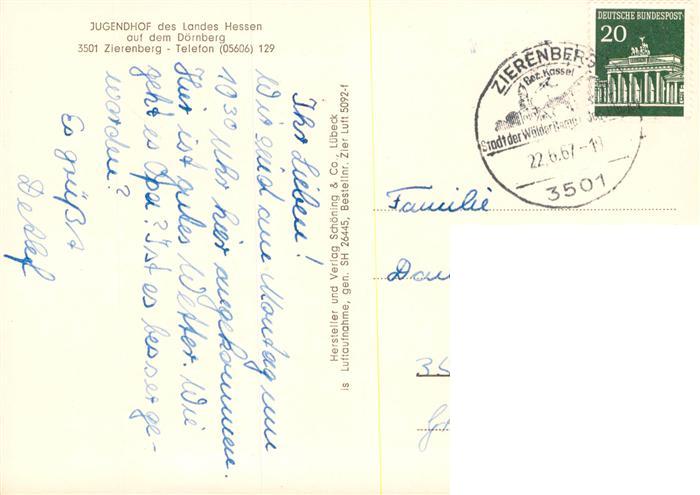 JUGENDHOF des Landes Hessen
auf dem Dörnberg
3501 Zierenberg - Telefon (05606) 129
Ihr Lieben!
Wir sind am Montag um
1030 Uhr hier angekommen.
Hier ist gutes Wetter. Wie
geht es Opa? Ist es besser ge-
worden?
Es grüßt
Detlef
Hersteller und Verlag Schöning & Co., Lübeck
is Luftaufnahme, gen. SH 26445, Bestellnr. Zier Luft 5092-f
DEUTSCHE BUNDESPOST
20
ZIERENBERG
Bez. Kassel
Stadt der Wälder Berge
22.6.67-1
3501
Familie
Dau
35